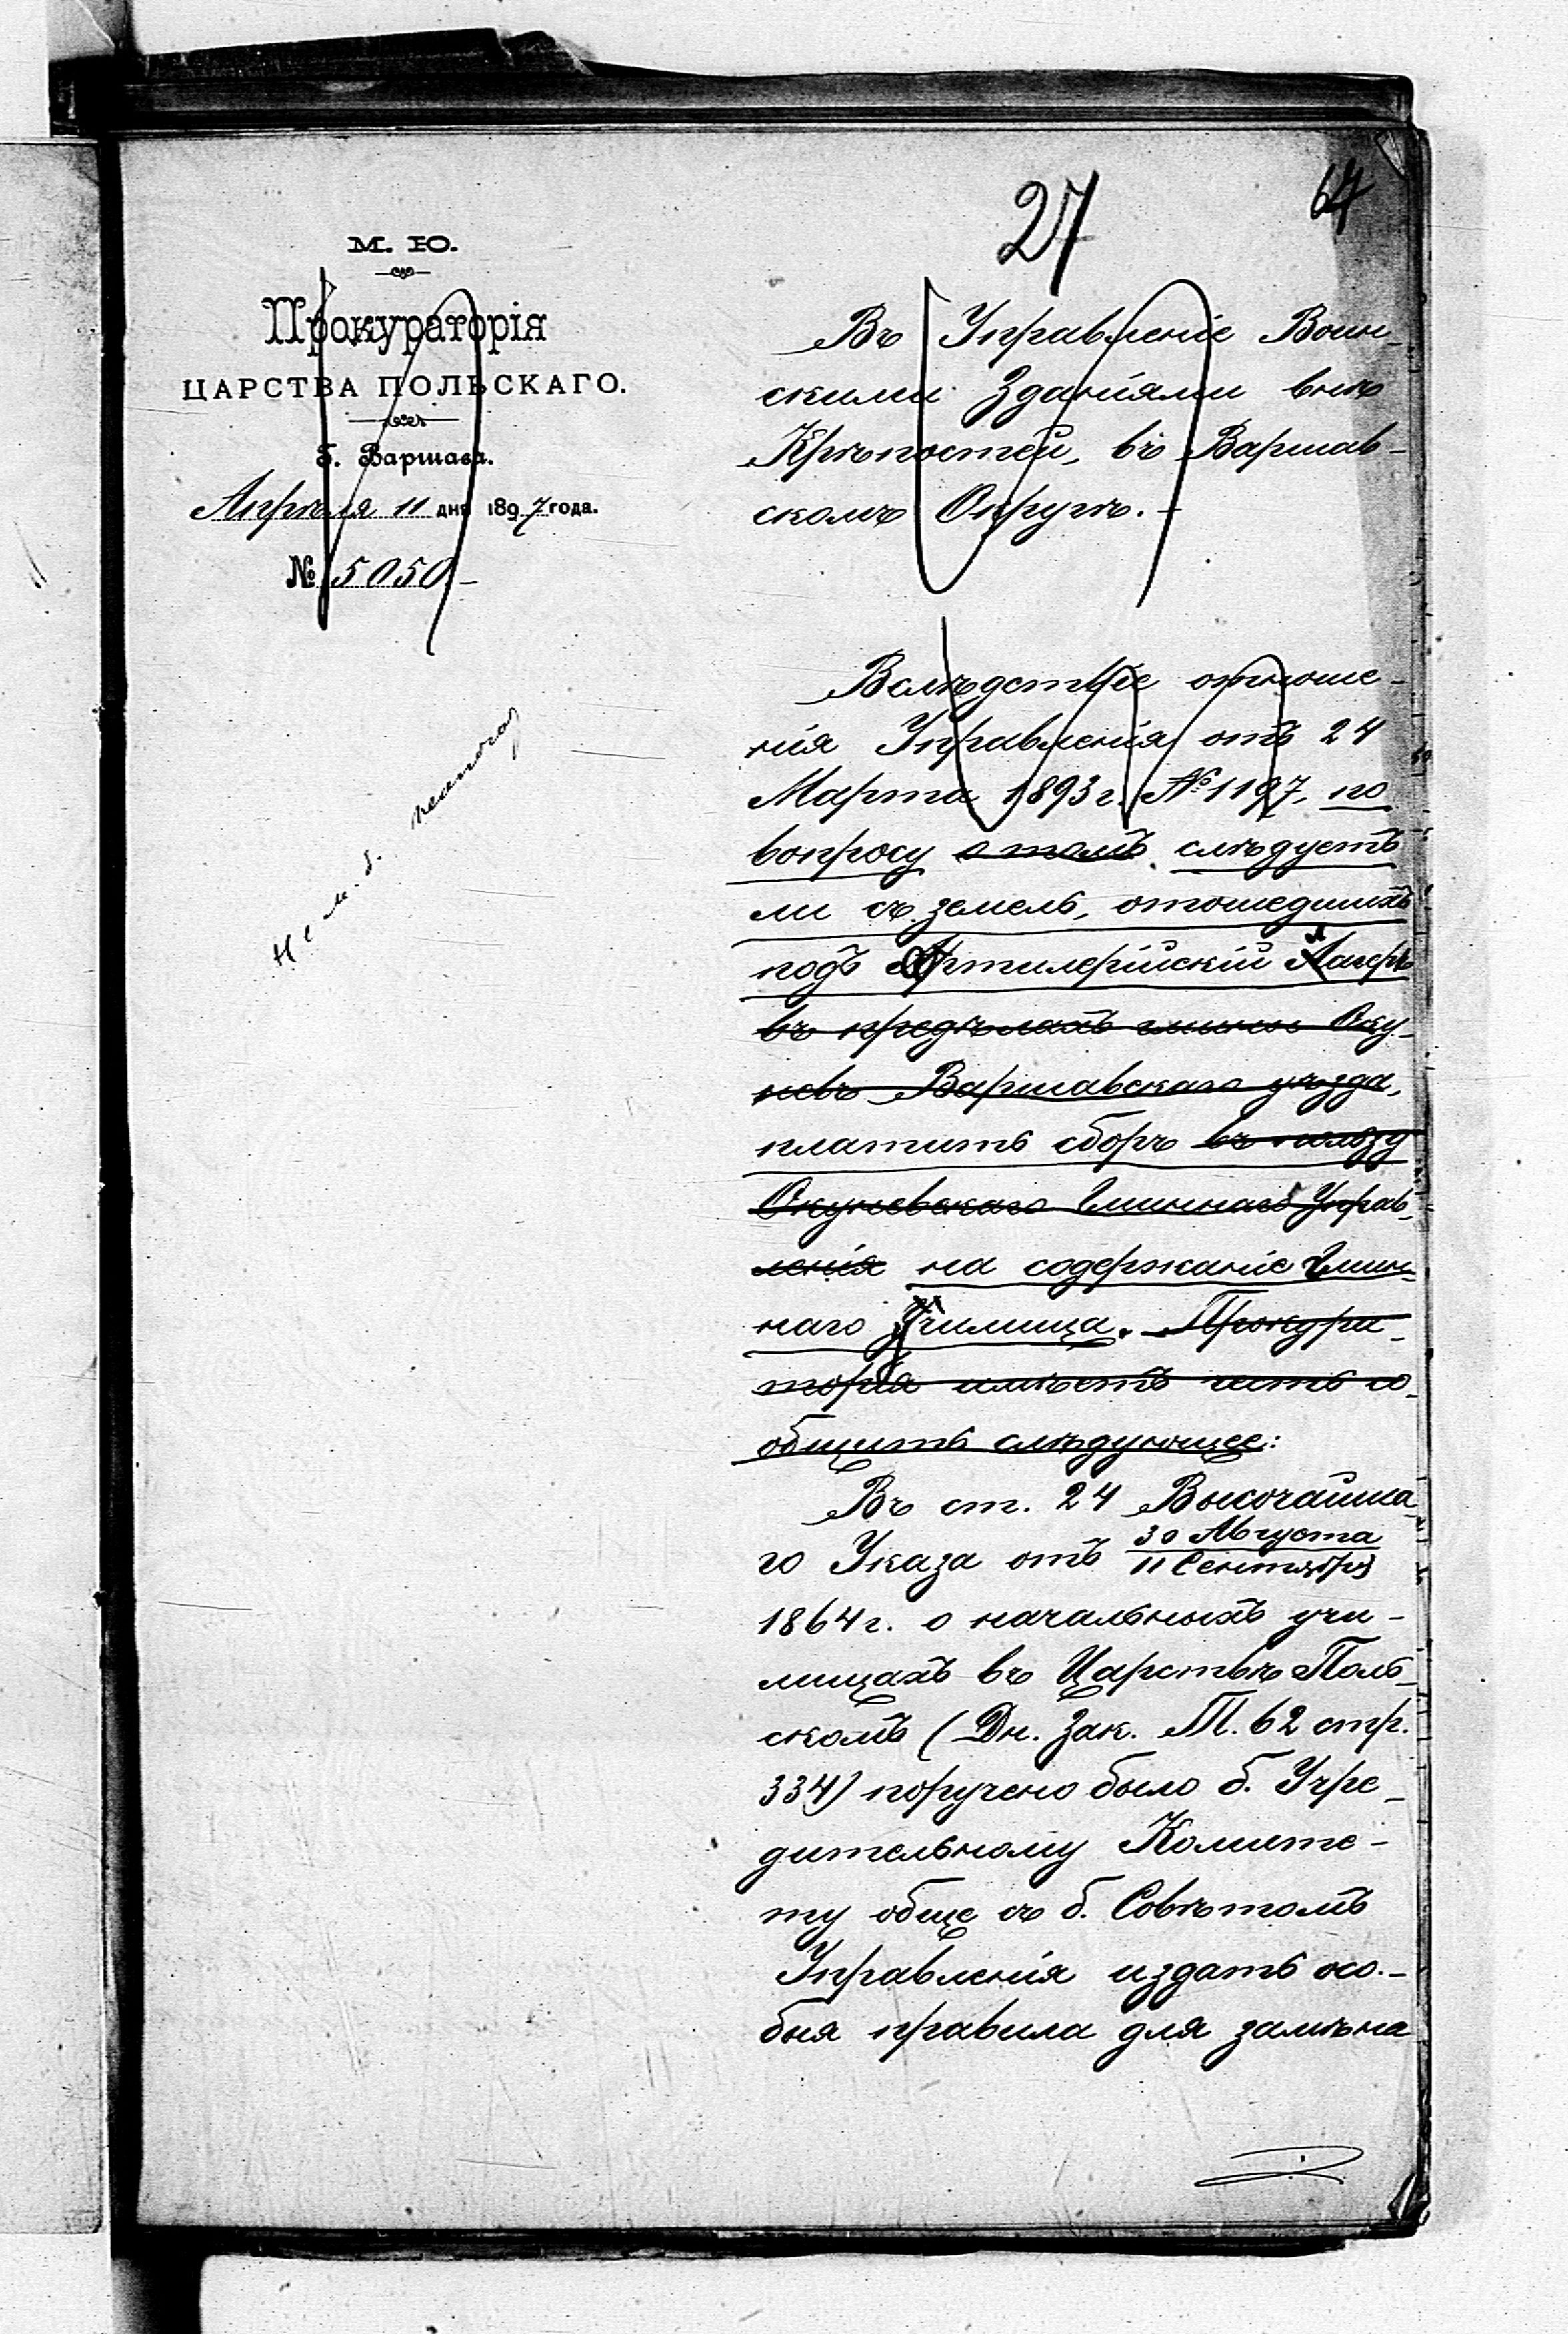 27
64
М. Ю.
Прокураторія
ЦАРСТВА ПОЛЬСКАГО.
Г. Варшава.
Апрѣля 11 дня 1897 года.
№ 5050
Въ Управленіе Воин-
скими Зданіями внѣ
Крѣпостей, въ Варшав-
скомъ Округѣ.-
Вслѣдствіе отноше-
нія Управленія отъ 24
Марта 1893 г. № 1197, по
вопросу о томъ, слѣдуетъ
ли съ земель, отошедшихъ
подъ Артилерійскій Лагерь
въ предѣлахъ гмины Оку-
невъ Варшавскаго уѣзда,
платить сборъ въ пользу
Окуневскаго Гминнаго Управ-
ленія на содержаніе Гмин-
наго Училища. Прокура-
торія имѣетъ честь со-
общить слѣдующее:
Въ ст. 24 Высочайша-
го Указа отъ 30 Августа
11 Сентября
1864 г. о начальныхъ учи-
лищахъ въ Царствѣ Поль-
скомъ (Дн. Зак. Т. 62 стр.
334) поручено было б. Учре-
дительному Комите-
ту обще съ б. Совѣтомъ
Управленія издать осо-
быя правила для замѣна